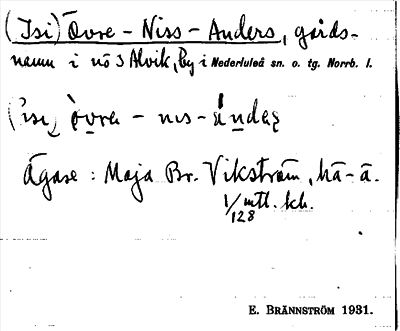 (Isi) Övre - Niss - Anders, gårds-
namn i nö S Alvik, by i Nederluleå sn. o. tg. Norrb. l.
Ägare : Maja Br. Vikström, hä-ä.
1/128 mtl. kh.
E. BRÄNNSTRÖM 1931.